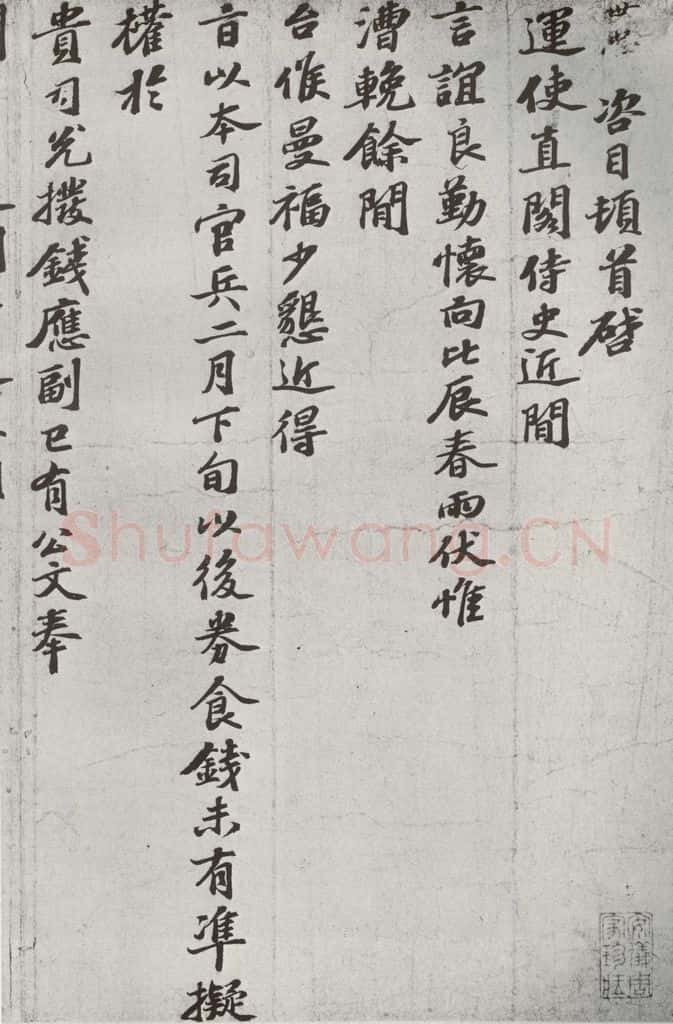 咨目頓首啓
運使直閣侍史近間
言誼良勤懷向比辰春雨伏惟
漕輓餘間
台候曼福少懇近得
旨以本司官兵二月下旬以後券食錢未有準擬
權於
貴司先撥錢應副已有公文奉
安儀周家珍藏
Shufawang.CN